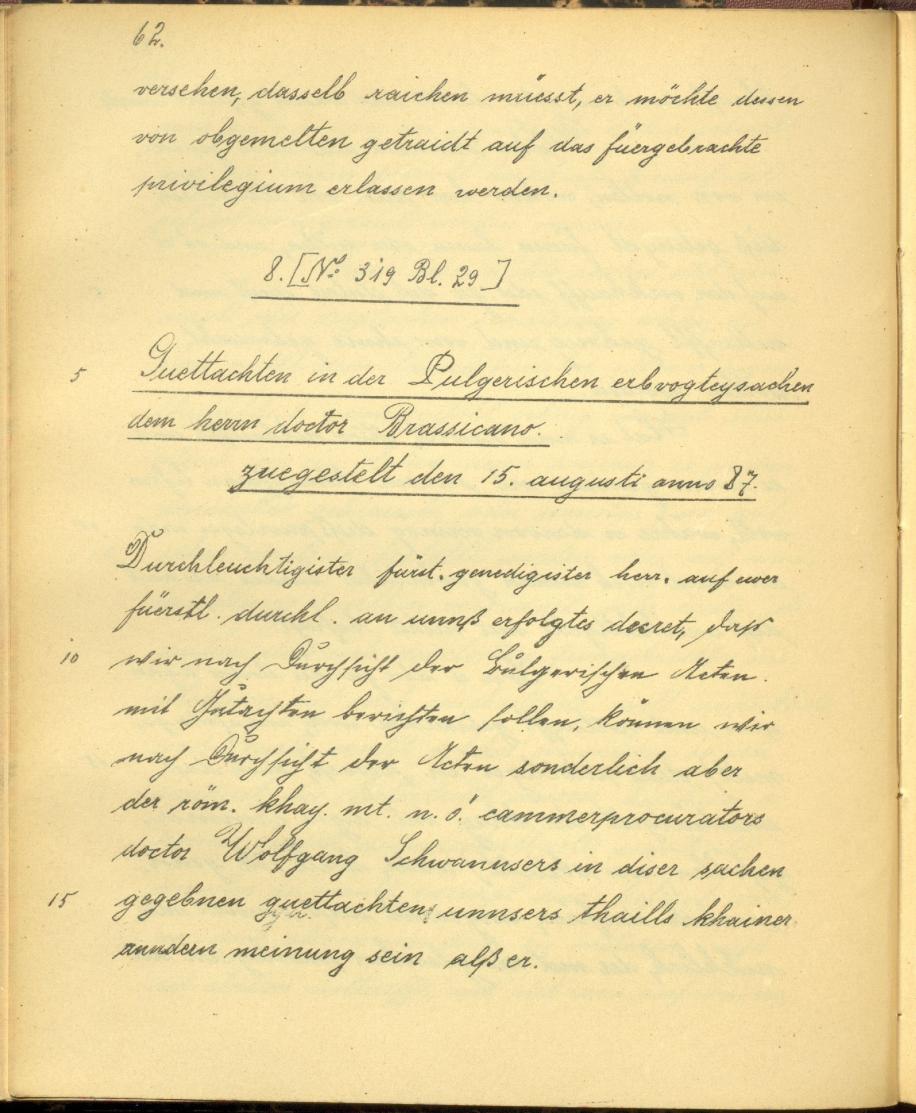 62.
versehen, dasselb raichen müesst, er möchte dessen
von obgemelten getraidt auf das füergebrachte
privilegium erlassen werden.
8. [No. 319 Bl. 29]
5 Guettachten in der Pulgerischen erbvogteysachen
dem herrn doctor Brassicano.
zuegestelt den 15. augusti anno 87.
Durchleuchtigister fürst. genedigister herr. auf ewer
füerstl. durchl. an unnß erfolgtes decret, daß
10 wir nach Durchsicht der Bulgerischen Acten.
mit Gutachten berichten sollen, können wir
nach Durchsicht der Acten sonderlich aber
der röm. khay. mt. n. ö. cammerprocurators
doctor Wolfgang Schwannsers in diser sachen
15 gegebnen guettachten unnsers thaills khainer
anndern meinung sein alß er.